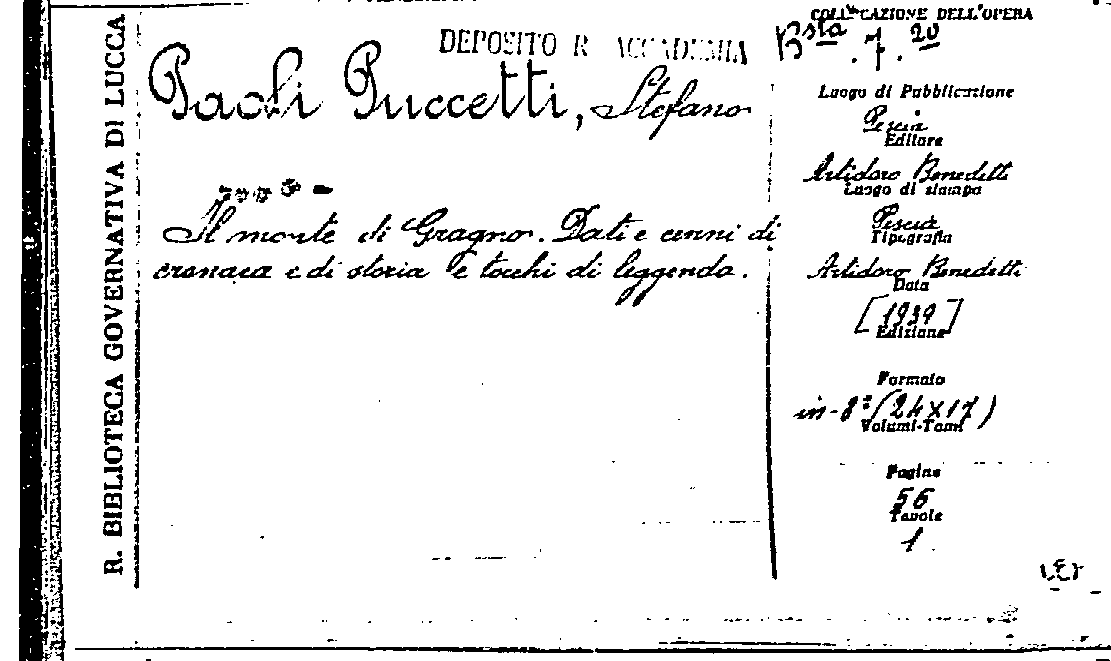 R. BIBLIOTECA GOVERNATIVA DI LUCCA
DEPOSITO R ACCADEMIA
Paoli Puccetti, Stefano
Il monte di Gragno. Dati e cenni di
cronaca e di storia e tocchi di leggenda.
COLLOCAZIONE DELL'OPERA
Bsta. 7. 20
Luogo di Pubblicazione
Pescia
Editore
Artidoro Benedetti
Luogo di stampa
Pescia
Tipografia
Artidoro Benedetti
Data
[1939]
Edizione
Formato
in-8° (24X17)
Volumi-Tomi
Pagine
56
Tavole
1